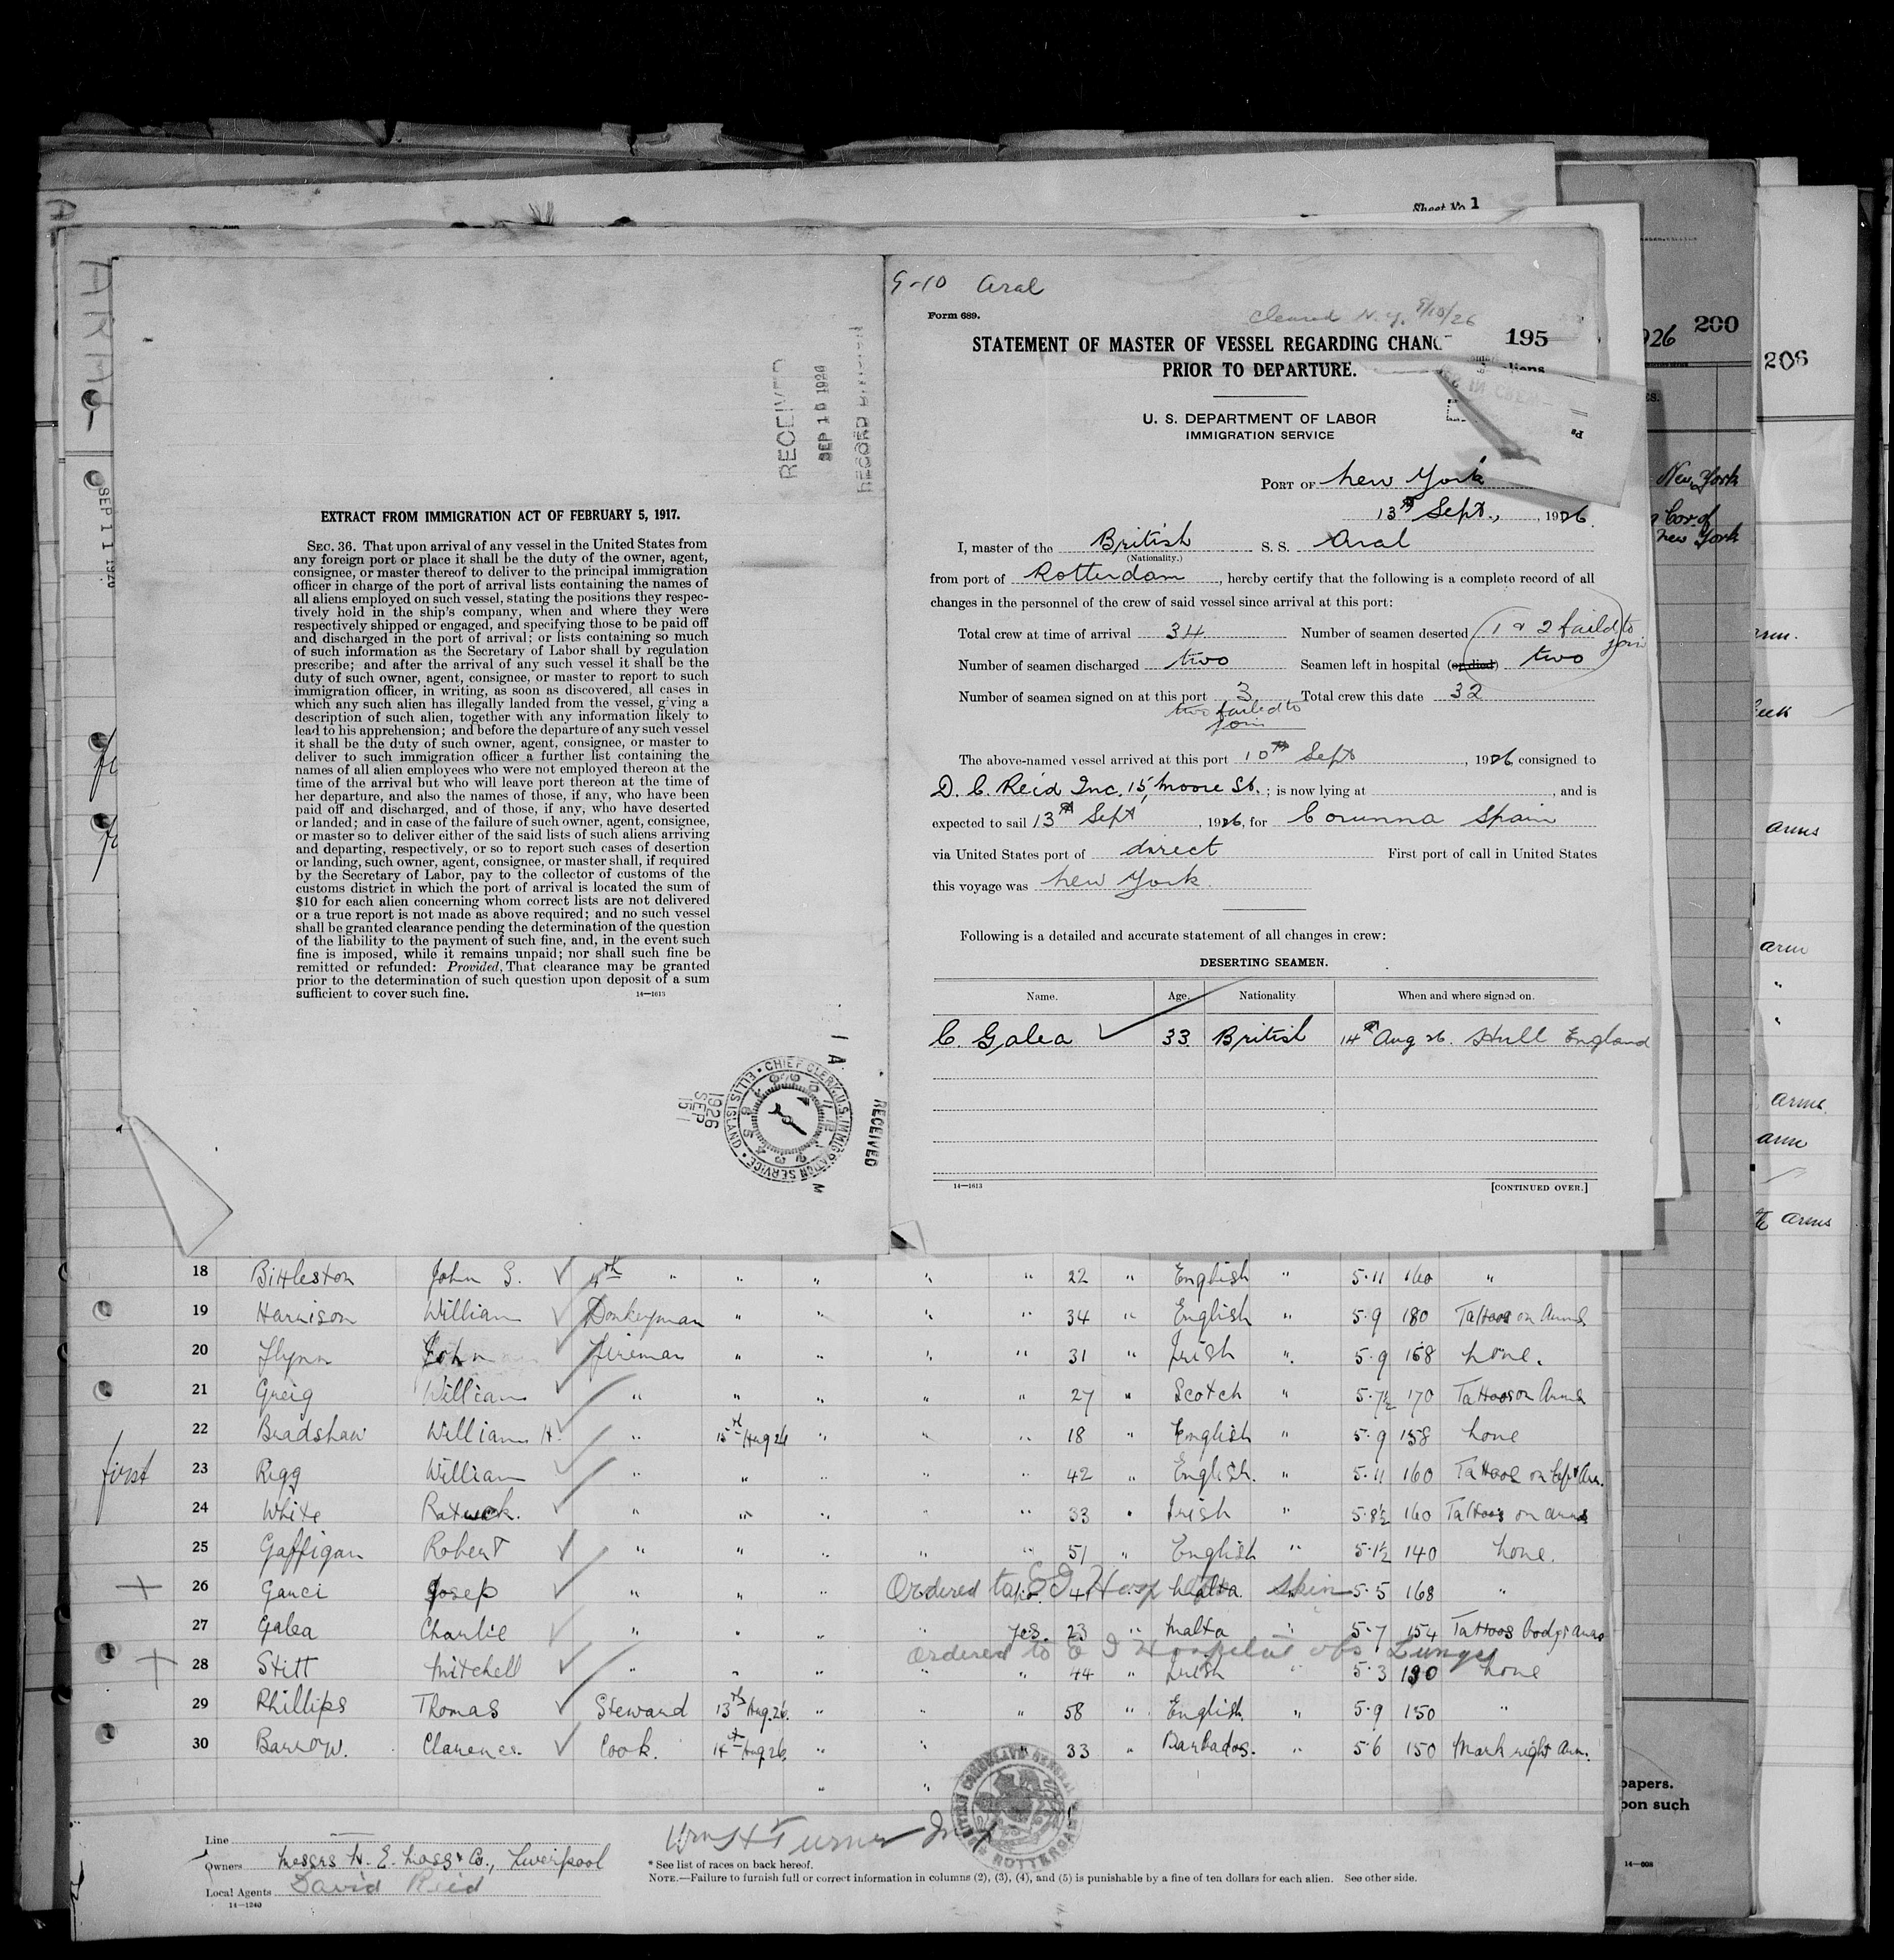 Sheet No. 1
ARM
SEP 11 1926
RECEIVED
SEP 10 1926
RECORD DIVISION
EXTRACT FROM IMMIGRATION ACT OF FEBRUARY 5, 1917.
SEC. 36. That upon arrival of any vessel in the United States from
any foreign port or place it shall be the duty of the owner, agent,
consignee, or master thereof to deliver to the principal immigration
officer in charge of the port of arrival lists containing the names of
all aliens employed on such vessel, stating the positions they respec-
tively hold in the ship's company, when and where they were
respectively shipped or engaged, and specifying those to be paid off
and discharged in the port of arrival; or lists containing so much
of such information as the Secretary of Labor shall by regulation
prescribe; and after the arrival of any such vessel it shall be the
duty of such owner, agent, consignee, or master to report to such
immigration officer, in writing, as soon as discovered, all cases in
which any such alien has illegally landed from the vessel, giving a
description of such alien, together with any information likely to
lead to his apprehension; and before the departure of any such vessel
it shall be the duty of such owner, agent, consignee, or master to
deliver to such immigration officer a further list containing the
names of all alien employees who were not employed thereon at the
time of the arrival but who will leave port thereon at the time of
her departure, and also the names of those, if any, who have been
paid off and discharged, and of those, if any, who have deserted
or landed; and in case of the failure of such owner, agent, consignee,
or master so to deliver either of the said lists of such aliens arriving
and departing, respectively, or so to report such cases of desertion
or landing, such owner, agent, consignee, or master shall, if required
by the Secretary of Labor, pay to the collector of customs of the
customs district in which the port of arrival is located the sum of
$10 for each alien concerning whom correct lists are not delivered
or a true report is not made as above required; and no such vessel
shall be granted clearance pending the determination of the question
of the liability to the payment of such fine, and, in the event such
fine is imposed, while it remains unpaid; nor shall such fine be
remitted or refunded: Provided, That clearance may be granted
prior to the determination of such question upon deposit of a sum
sufficient to cover such fine.
14—1613
CHIEF CLERK, U.S. IMMIGRATION SERVICE • ELLIS ISLAND •
1926 SEP 15
RECEIVED
9-10 Aral
Form 689.
Cleared N.Y. 9/13/26
STATEMENT OF MASTER OF VESSEL REGARDING CHANG
195
PRIOR TO DEPARTURE.
U. S. DEPARTMENT OF LABOR
IMMIGRATION SERVICE
PORT OF New York
13th Sept., 1926.
I, master of the British S. S. Aral
(Nationality.)
from port of Rotterdam, hereby certify that the following is a complete record of all
changes in the personnel of the crew of said vessel since arrival at this port:
Total crew at time of arrival 34 Number of seamen deserted 1 & 2 faild to join
Number of seamen discharged two Seamen left in hospital (or died) two
Number of seamen signed on at this port 3 Total crew this date 32
two failed to
join
The above-named vessel arrived at this port 10th Sept, 1926 consigned to
D. C. Reid Inc. 15, Moore St.; is now lying at , and is
expected to sail 13th Sept, 1926, for Corunna Spain
via United States port of direct First port of call in United States
this voyage was New York.
Following is a detailed and accurate statement of all changes in crew:
DESERTING SEAMEN.
Name. Age. Nationality When and where signed on.
C. Galea 33 British 14th Aug 26. Hull England
14—1613 [CONTINUED OVER.]
18 Bittleston John S. 4th " " " " " 22 " English " 5·11 160 "
19 Harrison William Donkeyman " " " " 34 " English " 5·9 180 Tattoos on Arms
20 Flynn John Fireman " " " " 31 " Irish " 5·9 158 None.
21 Greig William " " " " " 27 " Scotch " 5·7½ 170 Tattoos on Arms
22 Bradshaw William H. " 15th Aug 26 " " " 18 " English " 5·9 158 None
first 23 Rigg William " " " " 42 " English. " 5·11 160 Tattoos on Left Arm.
24 White Patrick. " " " " 33 " Irish " 5·8½ 160 Tattoos on arms
25 Gaffigan Robert " " " " " 51 " English " 5·1½ 140 None.
Ordered to E I Hosp skin
26 Gauci Josep " " " 41 Malta. 5·5 168 "
27 Galea Charlie " " " " yes. 23 " Malta " 5·7 154 Tattoos body & arms
Ordered to E I Hospital obs Lungs
28 Stitt Mitchell " " " " " 44 " Irish " 5·3 130 None
29 Phillips Thomas Steward 13th Aug. 26. " " " 58 " English. " 5·9 150 "
30 Barrow. Clarence. Cook. 14th Aug 26. " " " 33 " Barbados. " 5·6 150 Mark right Arm.
BRITISH CONSULATE GENERAL ROTTERDAM
Line
Owners Messrs H. E. Moss & Co., Liverpool
Local Agents David Reid
14—1240
Wm H Turner
* See list of races on back hereof.
NOTE.—Failure to furnish full or correct information in columns (2), (3), (4), and (5) is punishable by a fine of ten dollars for each alien. See other side.
926 200
206
New York
Cor. of
New York
arms
arm
arms.
arm
arms
papers.
pon such
14—608